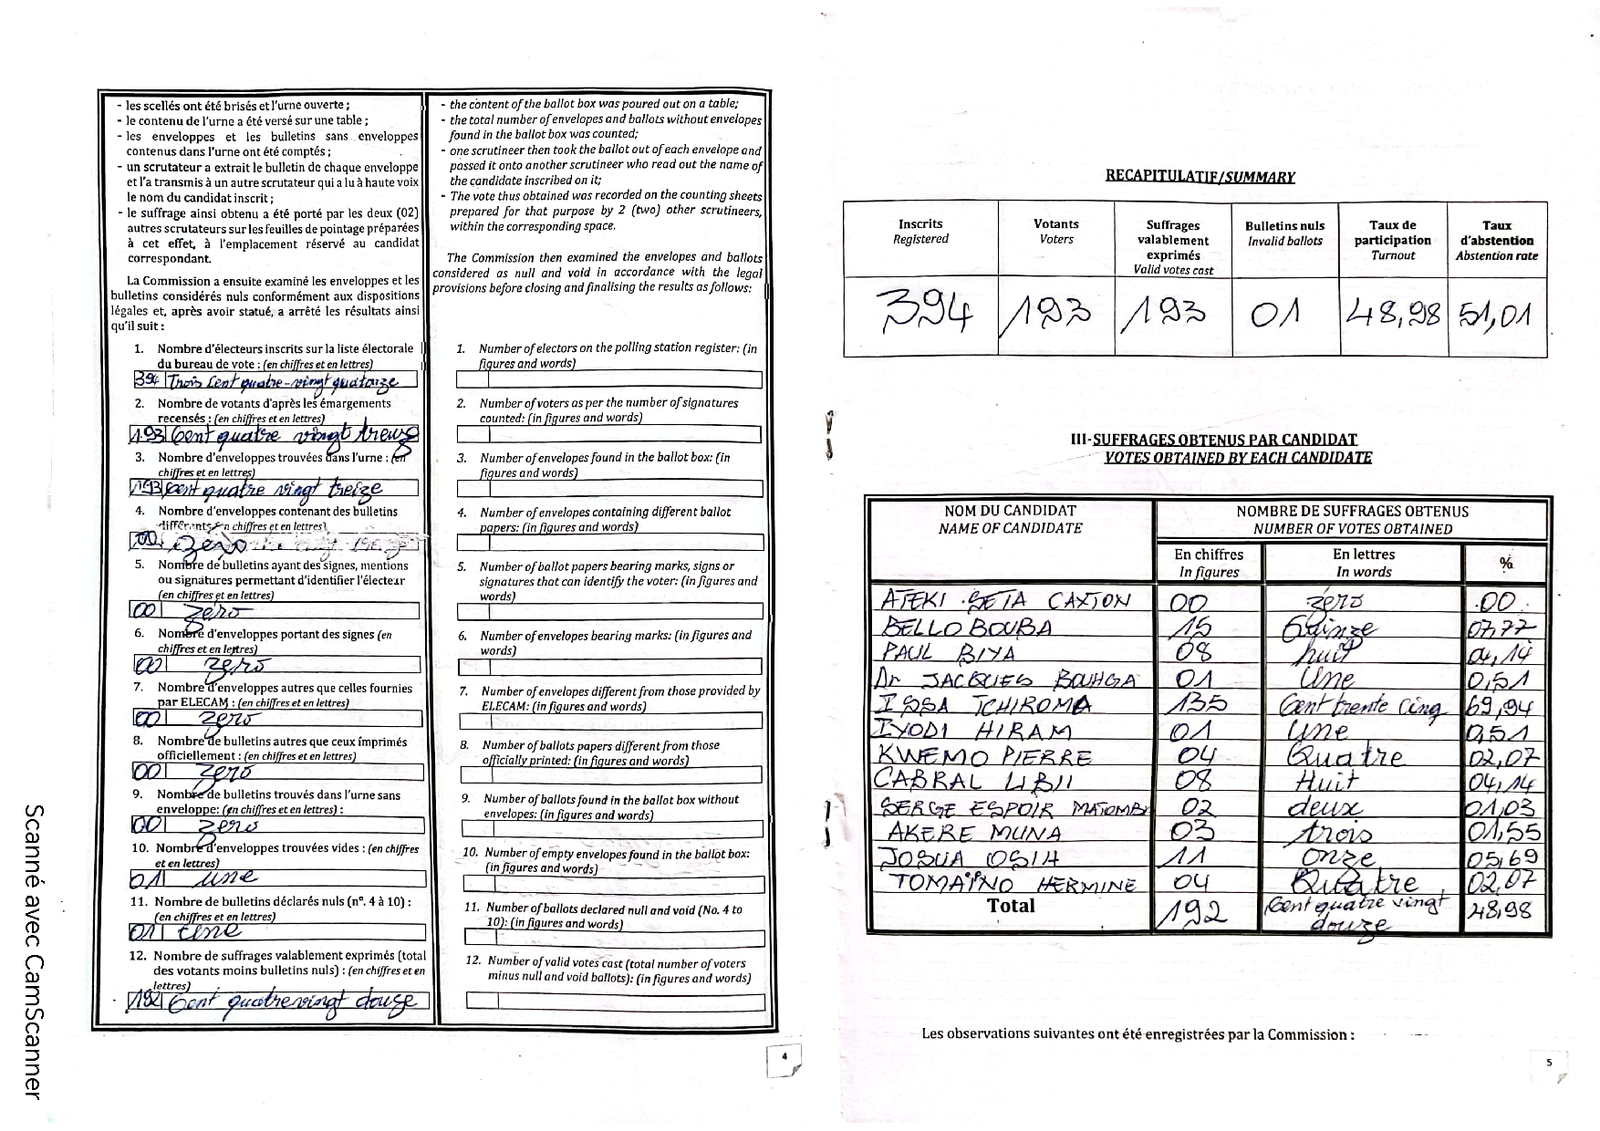 - les scellés ont été brisés et l'urne ouverte ;
- le contenu de l'urne a été versé sur une table ;
- les enveloppes et les bulletins sans enveloppes
contenus dans l'urne ont été comptés ;
- un scrutateur a extrait le bulletin de chaque enveloppe
et l'a transmis à un autre scrutateur qui a lu à haute voix
le nom du candidat inscrit ;
- le suffrage ainsi obtenu a été porté par les deux (02)
autres scrutateurs sur les feuilles de pointage préparées
à cet effet, à l'emplacement réservé au candidat
correspondant.
La Commission a ensuite examiné les enveloppes et les
bulletins considérés nuls conformément aux dispositions
légales et, après avoir statué, a arrêté les résultats ainsi
qu'il suit :
1. Nombre d'électeurs inscrits sur la liste électorale
du bureau de vote : (en chiffres et en lettres)
394 Trois Cent quatre-vingt quatorze
2. Nombre de votants d'après les émargements
recensés : (en chiffres et en lettres)
193 Cent quatre vingt treize
3. Nombre d'enveloppes trouvées dans l'urne : (en
chiffres et en lettres)
193 Cent quatre vingt treize
4. Nombre d'enveloppes contenant des bulletins
différents (en chiffres et en lettres)
00 zero
5. Nombre de bulletins ayant des signes, mentions
ou signatures permettant d'identifier l'électeur
(en chiffres et en lettres)
00 zero
6. Nombre d'enveloppes portant des signes (en
chiffres et en lettres)
00 zero
7. Nombre d'enveloppes autres que celles fournies
par ELECAM : (en chiffres et en lettres)
00 zero
8. Nombre de bulletins autres que ceux imprimés
officiellement : (en chiffres et en lettres)
00 zero
9. Nombre de bulletins trouvés dans l'urne sans
enveloppe: (en chiffres et en lettres) :
00 zero
10. Nombre d'enveloppes trouvées vides : (en chiffres
et en lettres)
01 une
11. Nombre de bulletins déclarés nuls (n°. 4 à 10) :
(en chiffres et en lettres)
01 une
12. Nombre de suffrages valablement exprimés (total
des votants moins bulletins nuls) : (en chiffres et en
lettres)
192 Cent quatrevingt douze
- the content of the ballot box was poured out on a table;
- the total number of envelopes and ballots without envelopes
found in the ballot box was counted;
- one scrutineer then took the ballot out of each envelope and
passed it onto another scrutineer who read out the name of
the candidate inscribed on it;
- The vote thus obtained was recorded on the counting sheets
prepared for that purpose by 2 (two) other scrutineers,
within the corresponding space.
The Commission then examined the envelopes and ballots
considered as null and void in accordance with the legal
provisions before closing and finalising the results as follows:
1. Number of electors on the polling station register: (in
figures and words)
2. Number of voters as per the number of signatures
counted: (in figures and words)
3. Number of envelopes found in the ballot box: (in
figures and words)
4. Number of envelopes containing different ballot
papers: (in figures and words)
5. Number of ballot papers bearing marks, signs or
signatures that can identify the voter: (in figures and
words)
6. Number of envelopes bearing marks: (in figures and
words)
7. Number of envelopes different from those provided by
ELECAM: (in figures and words)
8. Number of ballots papers different from those
officially printed: (in figures and words)
9. Number of ballots found in the ballot box without
envelopes: (in figures and words)
10. Number of empty envelopes found in the ballot box:
(in figures and words)
11. Number of ballots declared null and void (No. 4 to
10): (in figures and words)
12. Number of valid votes cast (total number of voters
minus null and void ballots): (in figures and words)
4
Scanné avec CamScanner
RECAPITULATIF/SUMMARY
Inscrits Registered | Votants Voters | Suffrages valablement exprimés Valid votes cast | Bulletins nuls Invalid ballots | Taux de participation Turnout | Taux d'abstention Abstention rate
394 193 193 01 48,98 51,01
III-SUFFRAGES OBTENUS PAR CANDIDAT
VOTES OBTAINED BY EACH CANDIDATE
NOM DU CANDIDAT NOMBRE DE SUFFRAGES OBTENUS
NAME OF CANDIDATE NUMBER OF VOTES OBTAINED
En chiffres En lettres %
In figures In words
ATEKI SETA CAXTON 00 zéro 00
BELLO BOUBA 15 Quinze 07,77
PAUL BIYA 08 huit 04,14
Dr JACQUES BOUHGA 01 Une 0,51
ISSA TCHIROMA 135 Cent trente Cinq 69,94
IYODI HIRAM 01 Une 0,51
KWEMO PIERRE 04 Quatre 02,07
CABRAL LIBII 08 Huit 04,14
SERGE ESPOIR MATOMBA 02 deux 01,03
AKERE MUNA 03 trois 01,55
JOSUA OSIH 11 Onze 05,69
TOMAÏNO HERMINE 04 Quatre 02,07
Total 192 Cent quatre vingt douze 48,98
Les observations suivantes ont été enregistrées par la Commission :
5